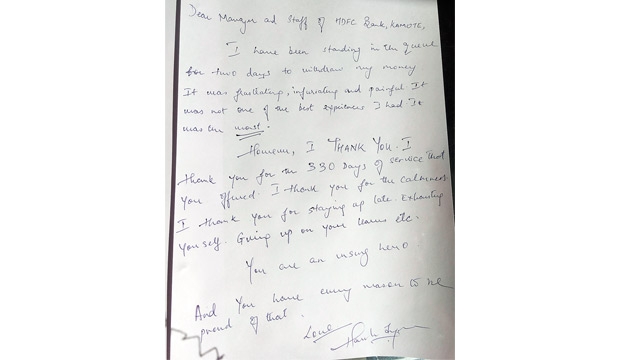 Dear Manager and Staff of HDFC Bank, KAMOTE,
I have been standing in the queue
for two days to withdraw my money
It was frustrating, infuriating and painful It
was not one of the best experiences I had. It
was the worst.
However, I THANK YOU. I
thank you for the 330 Days of service that
you offered. I thank you for the calmness
I thank you for staying up late. Exhausting
yourself. Giving up on your leaves etc.
You are an unsung hero
And you have every reason to be
proud of that.
Love